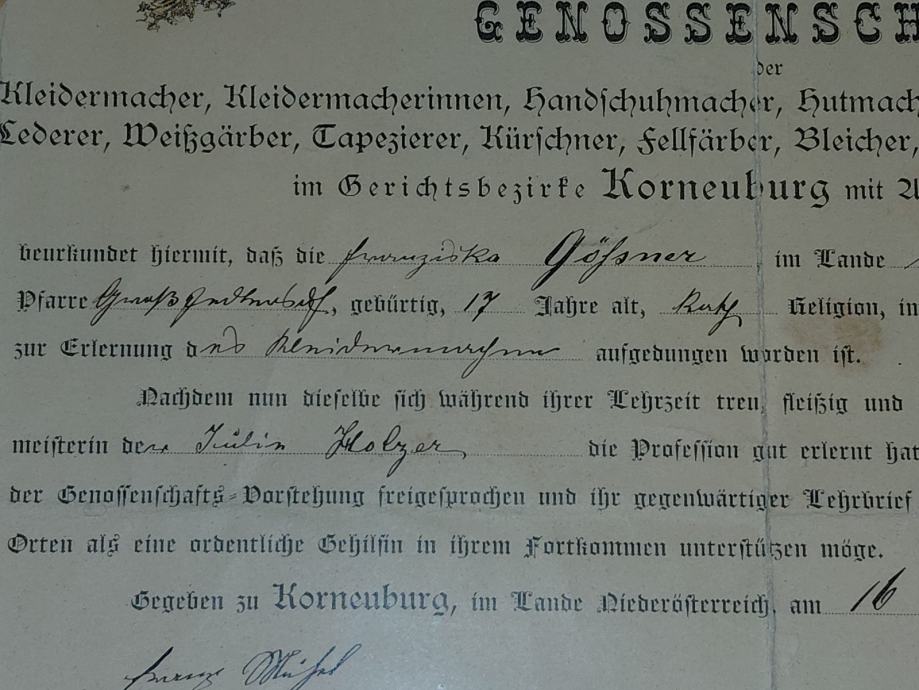 GENOSSENSCH
der
Kleidermacher, Kleidermacherinnen, Handschuhmacher, Hutmach
Lederer, Weißgärber, Tapezierer, Kürschner, Fellfärber, Bleicher,
im Gerichtsbezirke Korneuburg mit A
beurkundet hiermit, daß die Franziska Gössner im Lande
Pfarre, gebürtig, 17 Jahre alt, kath Religion, in
zur Erlernung des Kleidermachens aufgedungen worden ist.
Nachdem nun dieselbe sich während ihrer Lehrzeit treu, fleißig und
meisterin der Julie Holzer die Profession gut erlernt hat
der Genossenschafts-Vorstehung freigesprochen und ihr gegenwärtiger Lehrbrief
Orten als eine ordentliche Gehilfin in ihrem Fortkommen unterstützen möge.
Gegeben zu Korneuburg, im Lande Niederösterreich, am 16
Franz